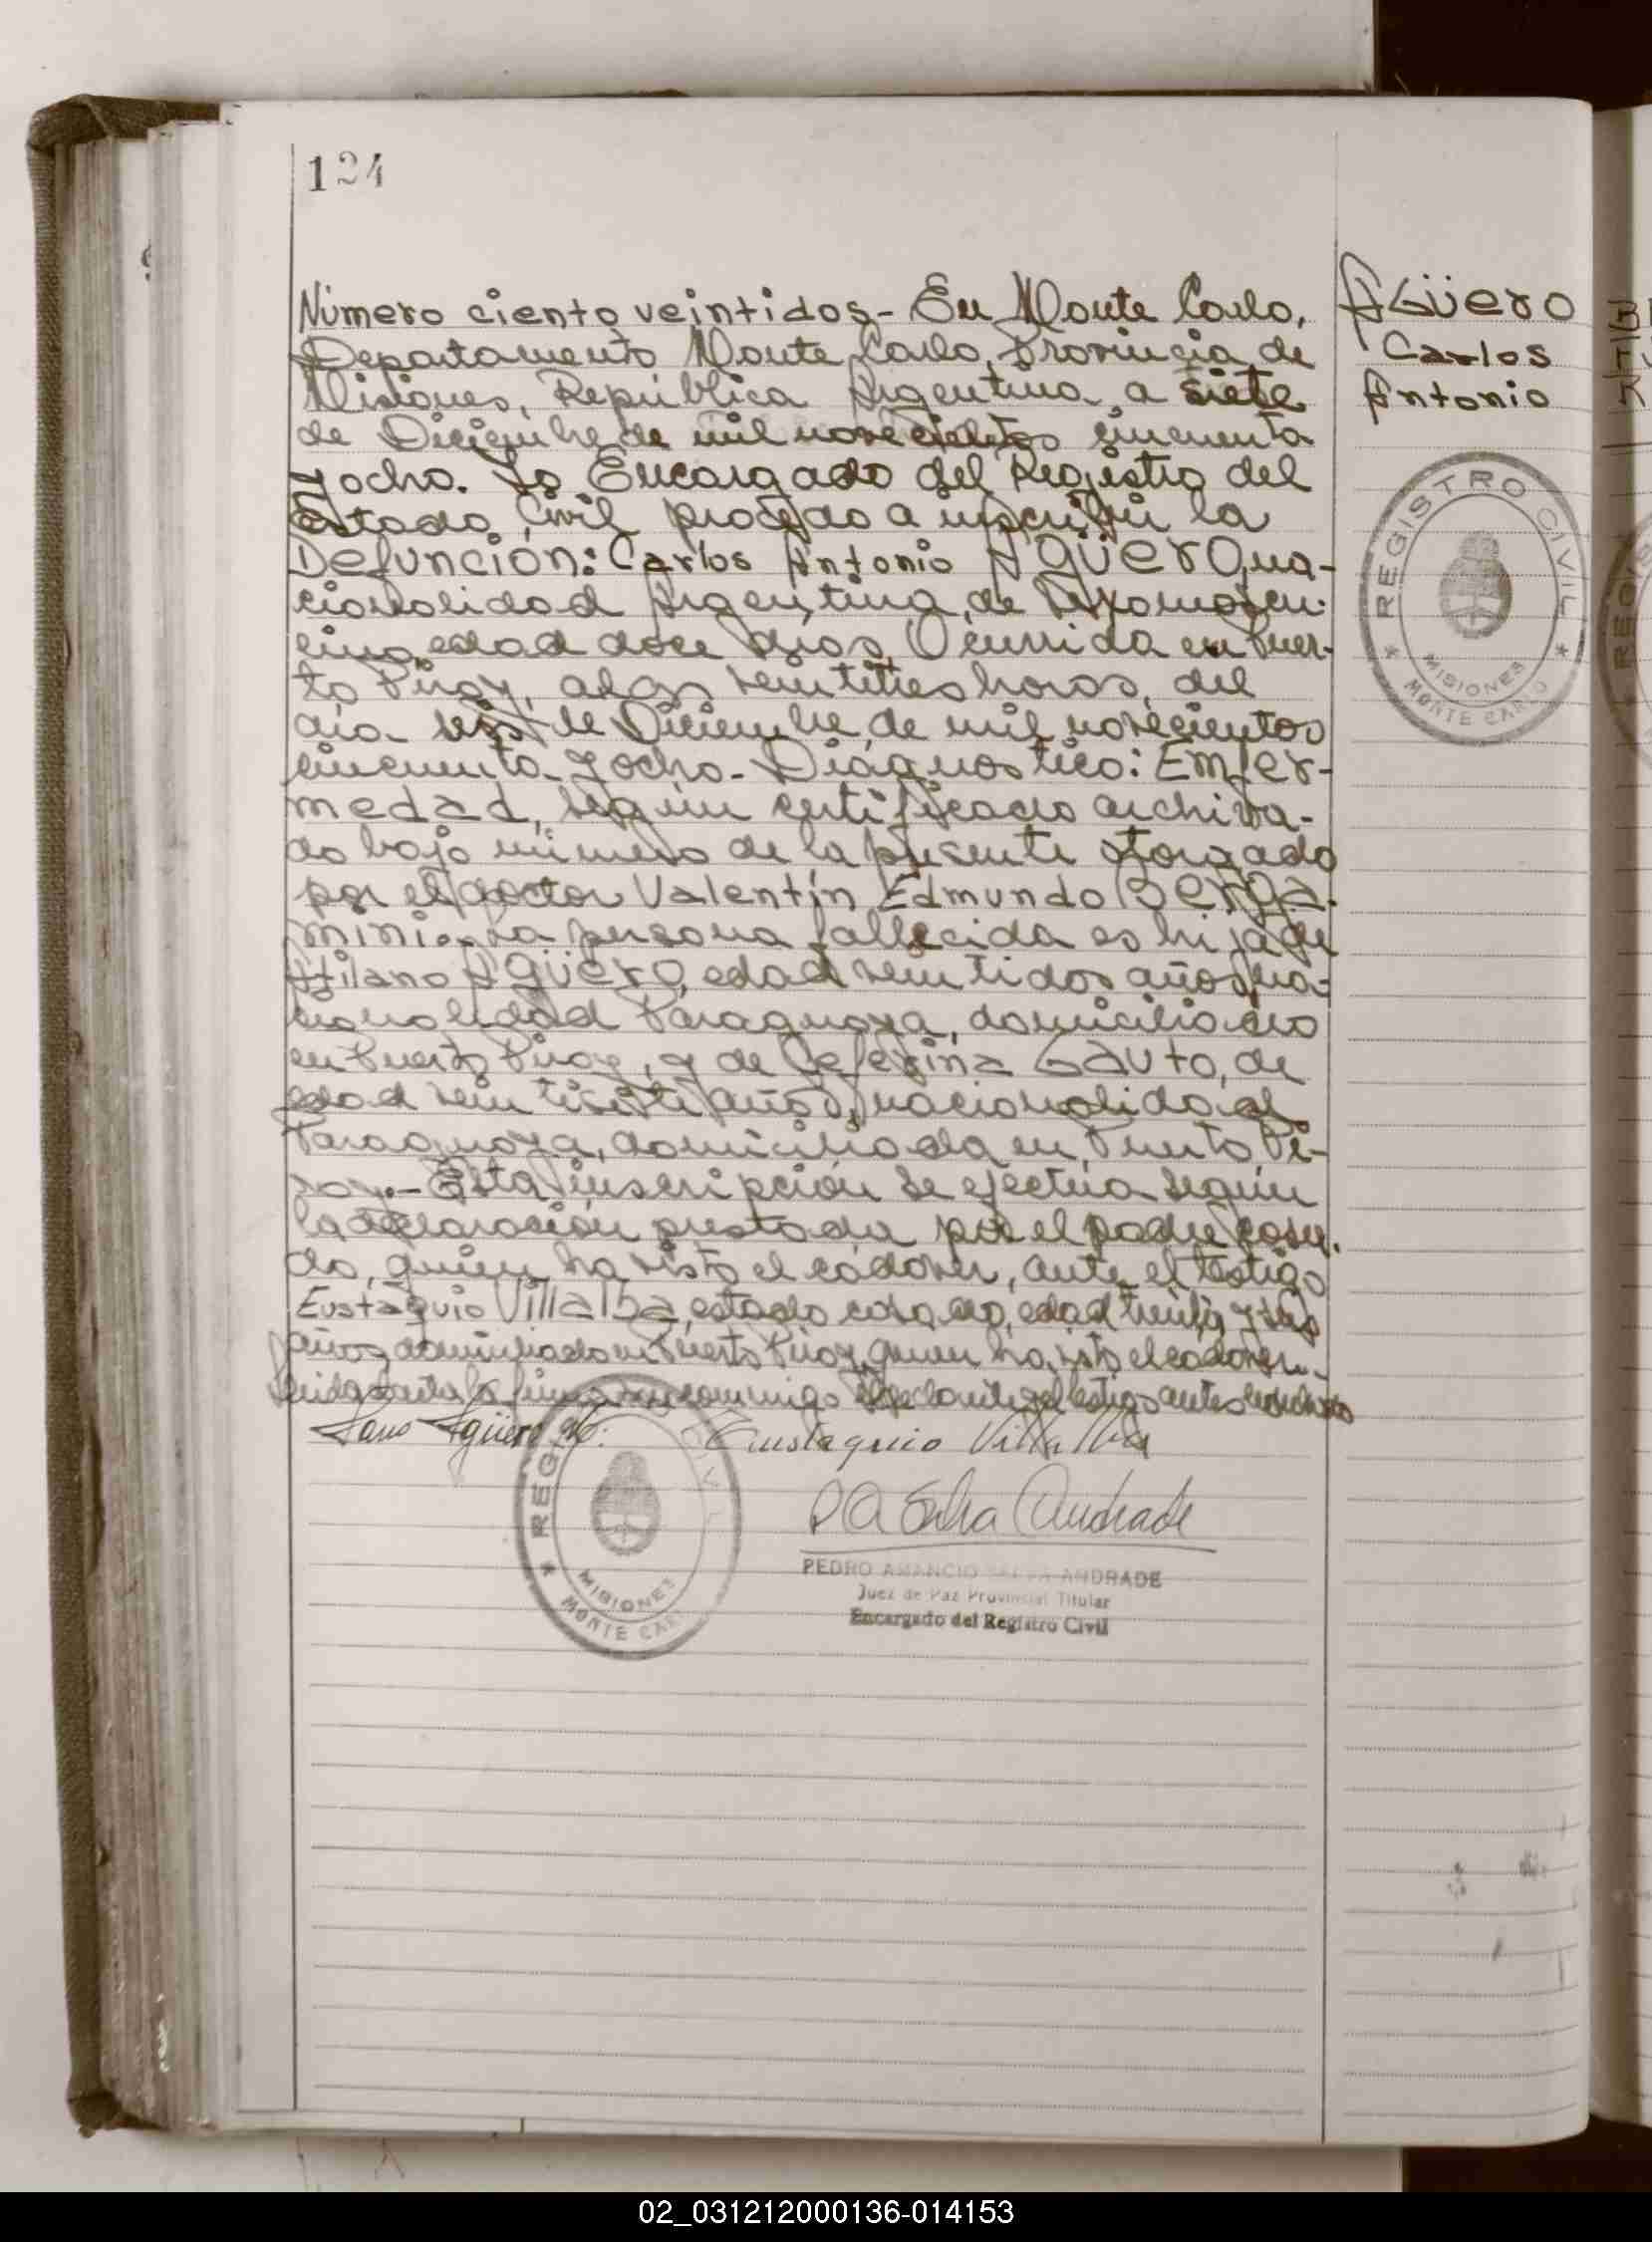 124
Número ciento veintidos- En Monte Carlo,
Departamento Monte Carlo, Provincia de
Misiones, República Argentina, a siete
de Diciembre de mil novecientos cincuenta
y ocho. Yo Encargado del Registro del
Estado Civil procedo a inscribir la
Defunción: Carlos Antonio AGÜERO, na-
cionalidad Argentina, de sexo mascu-
lino, edad doce días. Ocurrida en Puer-
to Piray, a las veintitres horas, del
día seis de Diciembre de mil novecientos
cincuenta y ocho- Diagnostico: Enfer-
medad, según certificado archiva-
do bajo número de la presente otorgado
por el doctor Valentín Edmundo Berga-
mini.- La persona fallecida es hija de
Atilano AGÜERO, edad veintidos años, na-
cionalidad Paraguaya, domiciliado
en Puerto Piray, y de Ceferina GAUTO, de
edad veintisiete años, nacionalidad
Paraguaya, domiciliada en Puerto Pi-
ray.- Esta inscripción se efectúa según
la declaración prestada por el padre
quien ha visto el cadáver, ante el testigo
Eustaquio Villalba, estado casado, edad treinta y
años, domiciliado en Puerto Piray, quien ha visto el cadáver.-
Leída el acta la firman conmigo el declarante y el testigo antes
Agüero Eustaquio Villalba
P A Silva Andrade
PEDRO AMANCIO SILVA ANDRADE
Juez de Paz Provincial Titular
Encargado del Registro Civil
REG
MISIONES
MONTE CAR
AGÜERO
Carlos
Antonio
REGISTRO CIVIL
MISIONES
MONTE CARLO
02_031212000136-014153